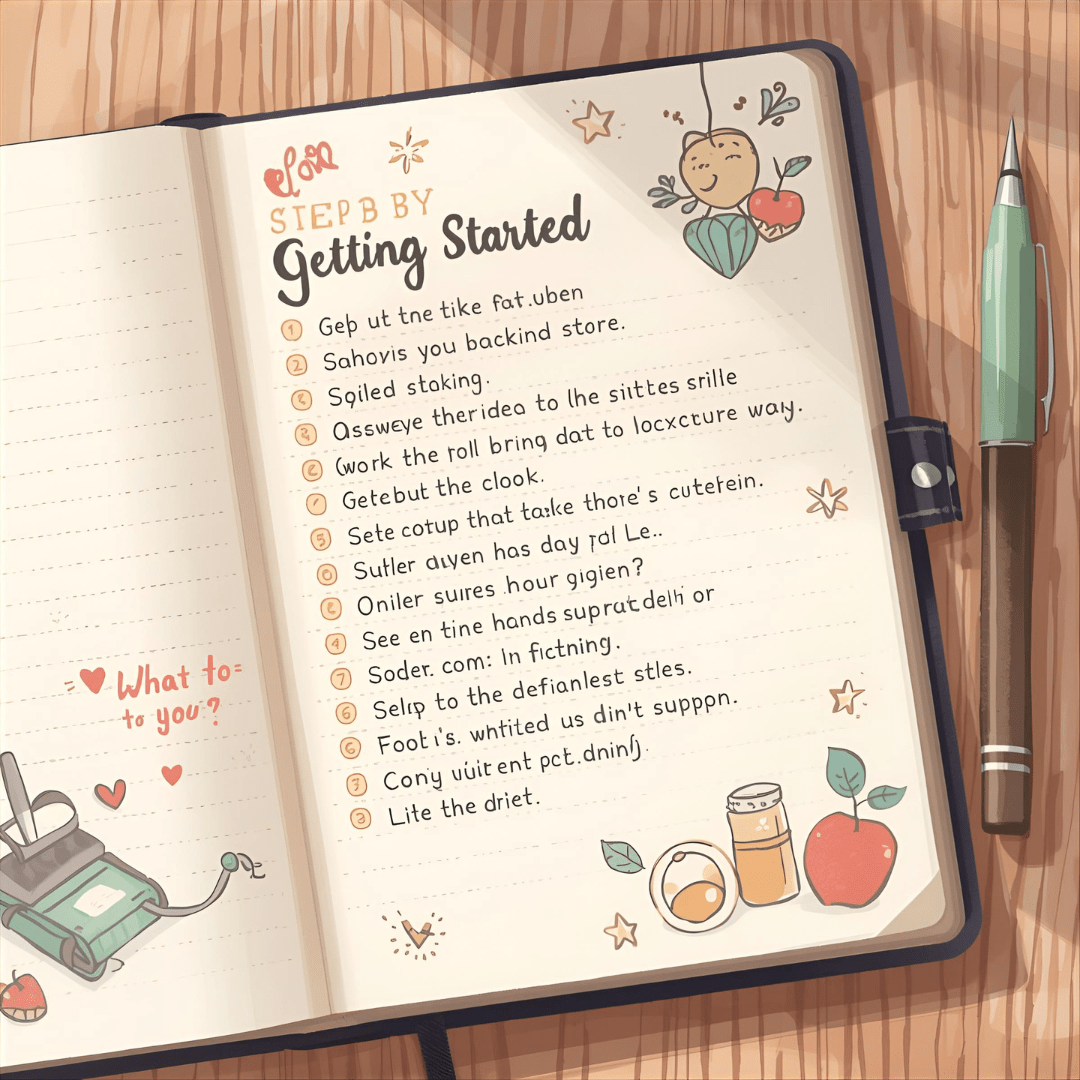 What to=
to you?
STEP B BY
Getting Started
1 Gep ut tne tike fat.uben
2 Sahovis you backind store.
Sqiled staking.
Qssweye theridea to lhe siittes srille
(work the roll bring dat to locxcture way.
Getebut the clook.
5 Sete cotup that take thore's cutefein.
Sutler has day Le..
Oniler suires hour gigien?
4 See en tine hands supratdelh or
7 Soder. com: In fictning.
6 to the defianlest stles.
6 Foot i's. whtited us din't suppon.
Cony ent
3 Lite the driet.